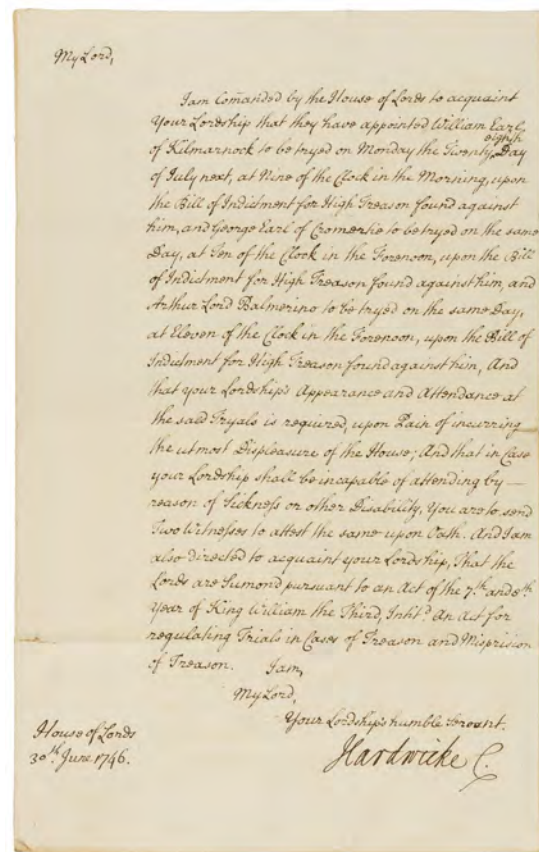 My Lord,
I am Com̃anded by the House of Lords to acquaint
Your Lordship that they have appointed William Earl
of Kilmarnock to be tryed on Monday the Twenty eighth Day
of July next, at Nine of the Clock in the Morning, upon
the Bill of Indictment for High Treason found against
him, and George Earl of Cromertie to be tryed on the same
Day, at Ten of the Clock in the Forenoon, upon the Bill
of Indictment for High Treason found against him, and
Arthur Lord Balmerino to be tryed on the same Day,
at Eleven of the Clock in the Forenoon, upon the Bill of
Indictment for High Treason found against him, And
that your Lordship's Appearance and Attendance at
the said Tryals is required, upon Pain of incurring
the utmost Displeasure of the House; And that in Case
your Lordship shall be incapable of attending by —
reason of Sickness or other Disability, You are to send
Two Witnesses to attest the same upon Oath. And I am
also directed to acquaint your Lordship, That the
Lords are Sumond pursuant to an Act of the 7th. and 8th.
Year of King William the Third, Intitd. An Act for
regulating Trials in Cases of Treason and Misprision
of Treason. I am,
My Lord,
Your Lordship's humble Servant.
House of Lords
30th. June 1746.
Hardwicke C.